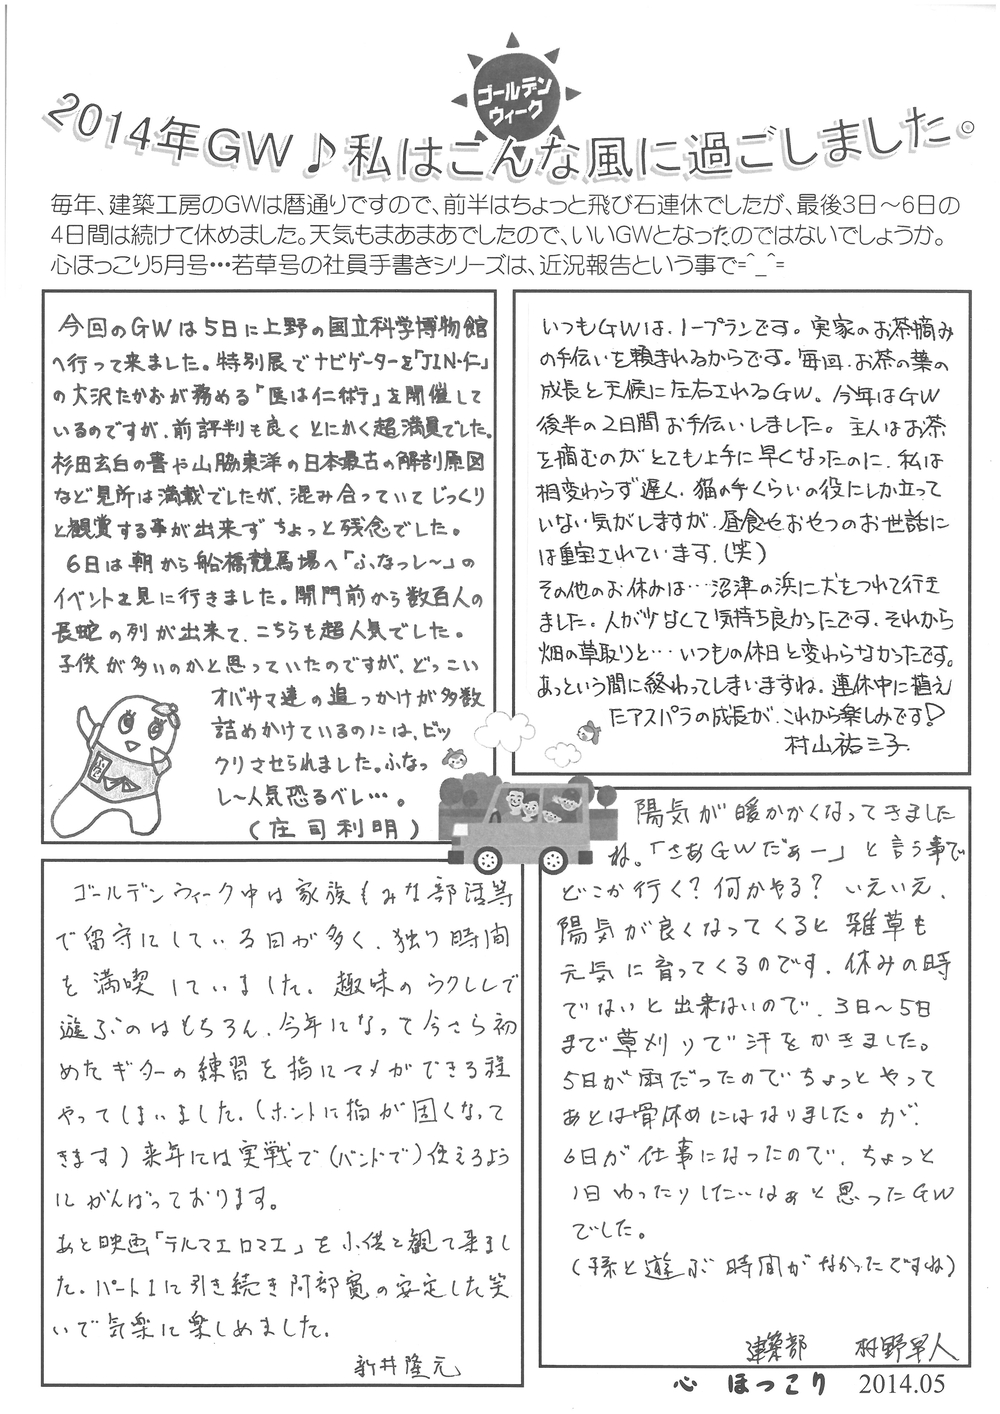 ゴールデン
ウィーク
2014年GW♪私はこんな風に過ごしました。
毎年、建築工房のGWは暦通りですので、前半はちょっと飛び石連休でしたが、最後3日～6日の
4日間は続けて休めました。天気もまあまあでしたので、いいGWとなったのではないでしょうか。
心ほっこり5月号…若草号の社員手書きシリーズは、近況報告という事で=^_^=
今回のGWは5日に上野の国立科学博物館
へ行って来ました。特別展でナビゲーターを「JIN-仁」
の大沢たかおが務める「医は仁術」を開催して
いるのですが、前評判も良くとにかく超満員でした。
杉田玄白の書や山脇東洋の日本最古の解剖原図
など見所は満載でしたが、混み合っていてじっくり
と観賞する事が出来ずちょっと残念でした。
6日は朝から船橋競馬場へ「ふなっしー」の
イベントを見に行きました。開門前から数百人の
長蛇の列が出来て、こちらも超人気でした。
子供が多いのかと思っていたのですが、どっこい
オバサマ達の追っかけが多数
詰めかけているのには、ビッ
クリさせられました。ふなっ
しー人気恐るべし…。
(庄司利明)
いつもGWは、ノープランです。実家のお茶摘み
の手伝いを頼まれるからです。毎回、お茶の葉の
成長と天候に左右されるGW。今年はGW
後半の2日間お手伝いしました。主人はお茶
を摘むのがとても上手に早くなったのに、私は
相変わらず遅く、猫の手くらいの役にしか立って
いない気がしますが、昼食やおやつのお世話に
は重宝されています。(笑)
その他のお休みは…沼津の浜に犬をつれて行き
ました。人が少なくて気持ち良かったです。それから
畑の草取りと…いつもの休日と変わらなかったです。
あっという間に終わってしまいますね。連休中に植え
たアスパラの成長が、これから楽しみです!
村山祐三子
ゴールデンウィーク中は家族もみな部活等
で留守にしている日が多く、独り時間
を満喫していました。趣味のラクしじで
遊ぶのはもちろん、今年になって今さら初
めたギターの練習を指にマメができる程
やってしまいました。(ホントに指が固くなって
きます)来年には実戦で(バンドで)使えるよう
にがんばっております。
あと映画「テルマエロマエ」を子供と観て来まし
た。パート1に引き続き阿部寛の安定した笑
いで気楽に楽しめました。
新井隆元
陽気が暖かかくなってきました
ね。「さあGWだぁー」と言う事で
どこか行く?何かやる?いえいえ、
陽気が良くなってくると雑草も
元気に育ってくるのです。休みの時
でないと出来ないので、3日～5日
まで草刈りで汗をかきました。
5日が雨だったのでちょっとやって
あとは骨休めにはなりました。が、
6日が仕事になったので、ちょっと
1日ゆったりしたいなぁと思ったGW
でした。
(孫と遊ぶ時間がなかったですね)
建築部 村野早人
心 ほっこり 2014.05